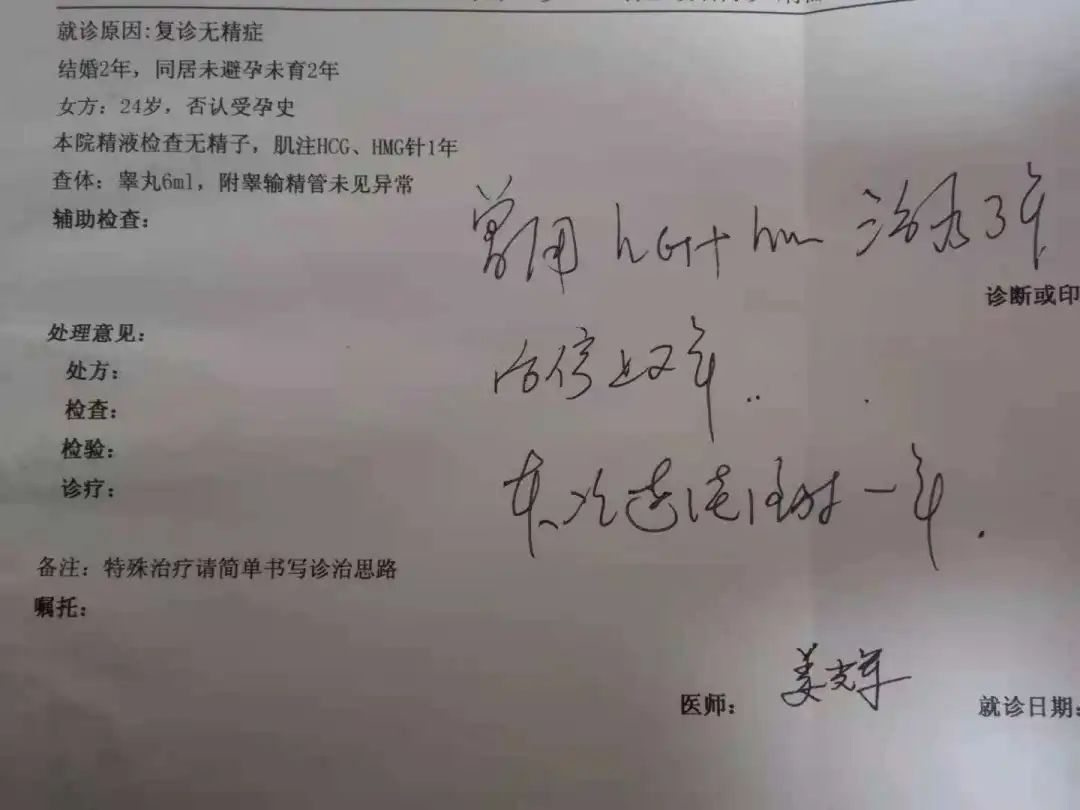 就诊原因:复诊无精症
结婚2年，同居未避孕未育2年
女方：24岁，否认受孕史
本院精液检查无精子，肌注HCG、HMG针1年
查体：睾丸6ml，附睾输精管未见异常
辅助检查：
曾用 hCG+hm 治疗3年
诊断或印
后停止2年..
处理意见：
处方：
检查：
检验：
诊疗：
本次连续注射一年.
备注：特殊治疗请简单书写诊治思路
嘱托：
医师：
就诊日期：